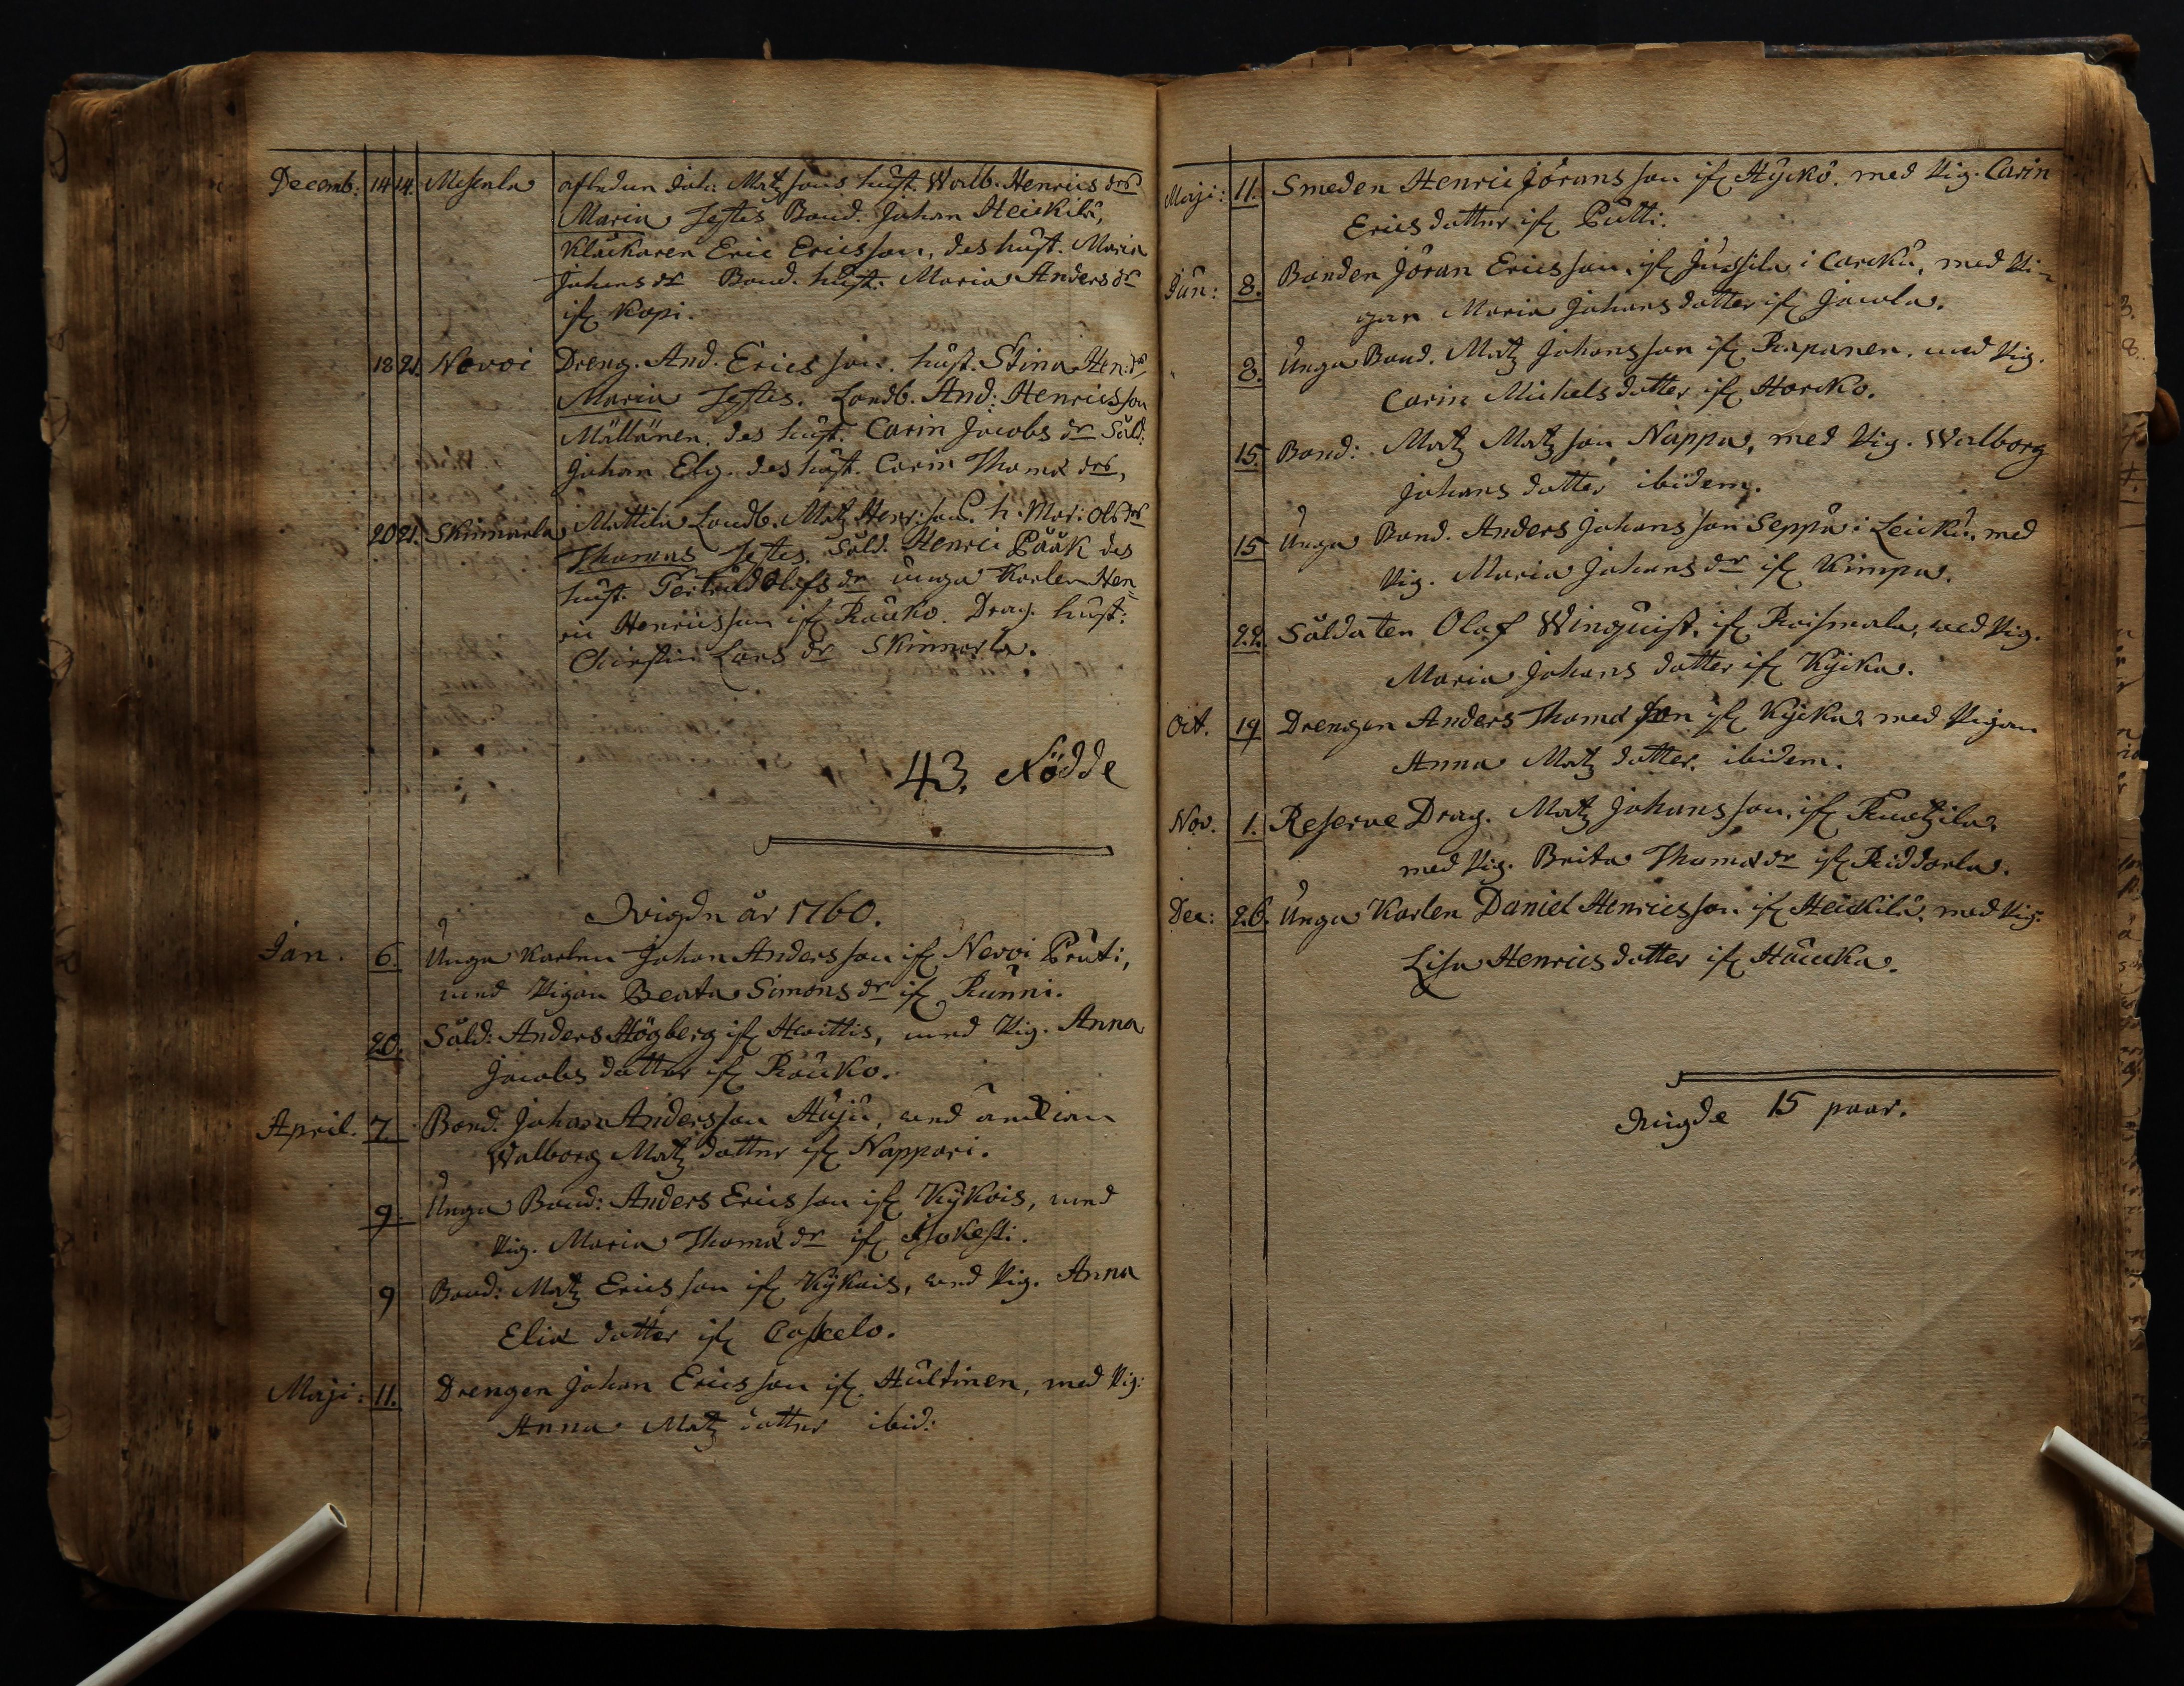 Decemb: 14 14. Misenla afledne Joh: Matzsons hust. Walb. Henrics drs
Maria Testes Bond. Johan Heickilä,
Kläckaren Eric Ericsson, des hust. Maria
Johans dr Bond. hust. Maria Anders dr
ifr. Kopi.
18 21. Nervoi Dreng. And. Ericsson. hust. Stina Hen: drs
Maria Testes. Landb. And: Henricsson
Mällänen. des hust. Carin Jacobs dr Sold:
Johan Elg. des hust. Carin Thomæ drs,
20 21. Skinnarla Mattila Landb. Matz Henr: sons. h. Mar: Ols drs
Thomas Testes. Sold. Henric Pääk des
hust. Gertrud Olofs dr unga Karlen Hen=
ric Henricsson ifr. Rauko. Drag. hust:
Christin Lars dr Skinnarla.
43. Födde
Wigde år 1760.
Jan. 6. Unga karlen Johan Andersson ifr. Nervoi Pruti,
med Pigan Beata Simons dr ifr. Runni.
20. Sold: Anders Högberg ifr. Hvittis, med Pig. Anna
Jacobs dotter ifr. Rauko.
April. 7. Bond. Johan Andersson Huju, med änckian
Walborg Matz dotter ifr. Nappari.
9. Unga Bond: Anders Ericsson ifr. Kÿkois, med
Pig. Maria Thomæ dr ifr. Isokesti.
9 Bond: Matz Ericsson ifr. Kÿkois, med Pig. Anna
Eliæ dotter ifr. Caskelo.
Maji: 11. Drengen Johan Ericsson ifr. Hultinen, med Pig:
Anna Matz dotter ibid:
Maji: 11. Smeden Henric Jöransson ifr. Hyckö. med Pig. Carin
Erics dotter ifr. Putti.
Jun: 8. Bonden Jöran Ericsson, ifr. Jussila i Carcku, med Pi=
gan Maria Johans dotter ifr. Jacola.
8. Unga Bond. Matz Johansson ifr. Rapanen. med Pig.
Carin Michels dotter ifr. Horcko.
15. Bond: Matz Matzson Nappa, med Pig. Walborg
Johans dotter ibidem.
15 Unga Bond. Anders Johansson Seppä i Leicku, med
Pig. Maria Johans dr ifr. Kimpa.
22. Soldaten Olof Winquist, ifr. Roismala, med Pig.
Maria Johans dotter ifr. Kÿcka.
Oct. 19 Drengen Anders Thomæ son ifr. Kÿcka, med Pigan
Anna Matz dotter. ibidem.
Nov. 1. Reserve Drag. Matz Johansson, ifr. Ruotzila,
med Pig. Brita Thomæ dr ifr. Riddarla.
Dec: 26. Unga Karlen Daniel Henricsson ifr. Heickilä, med Pig.
Lisa Henrics dotter ifr. Haucka.
Wigde 15 paar.